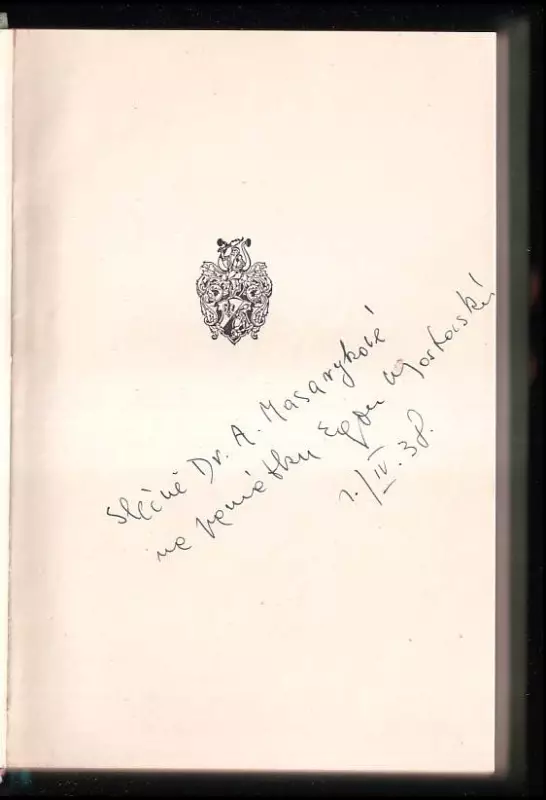 Slečně Dr. A. Masarykové
na památku Egon
1./IV. 38.